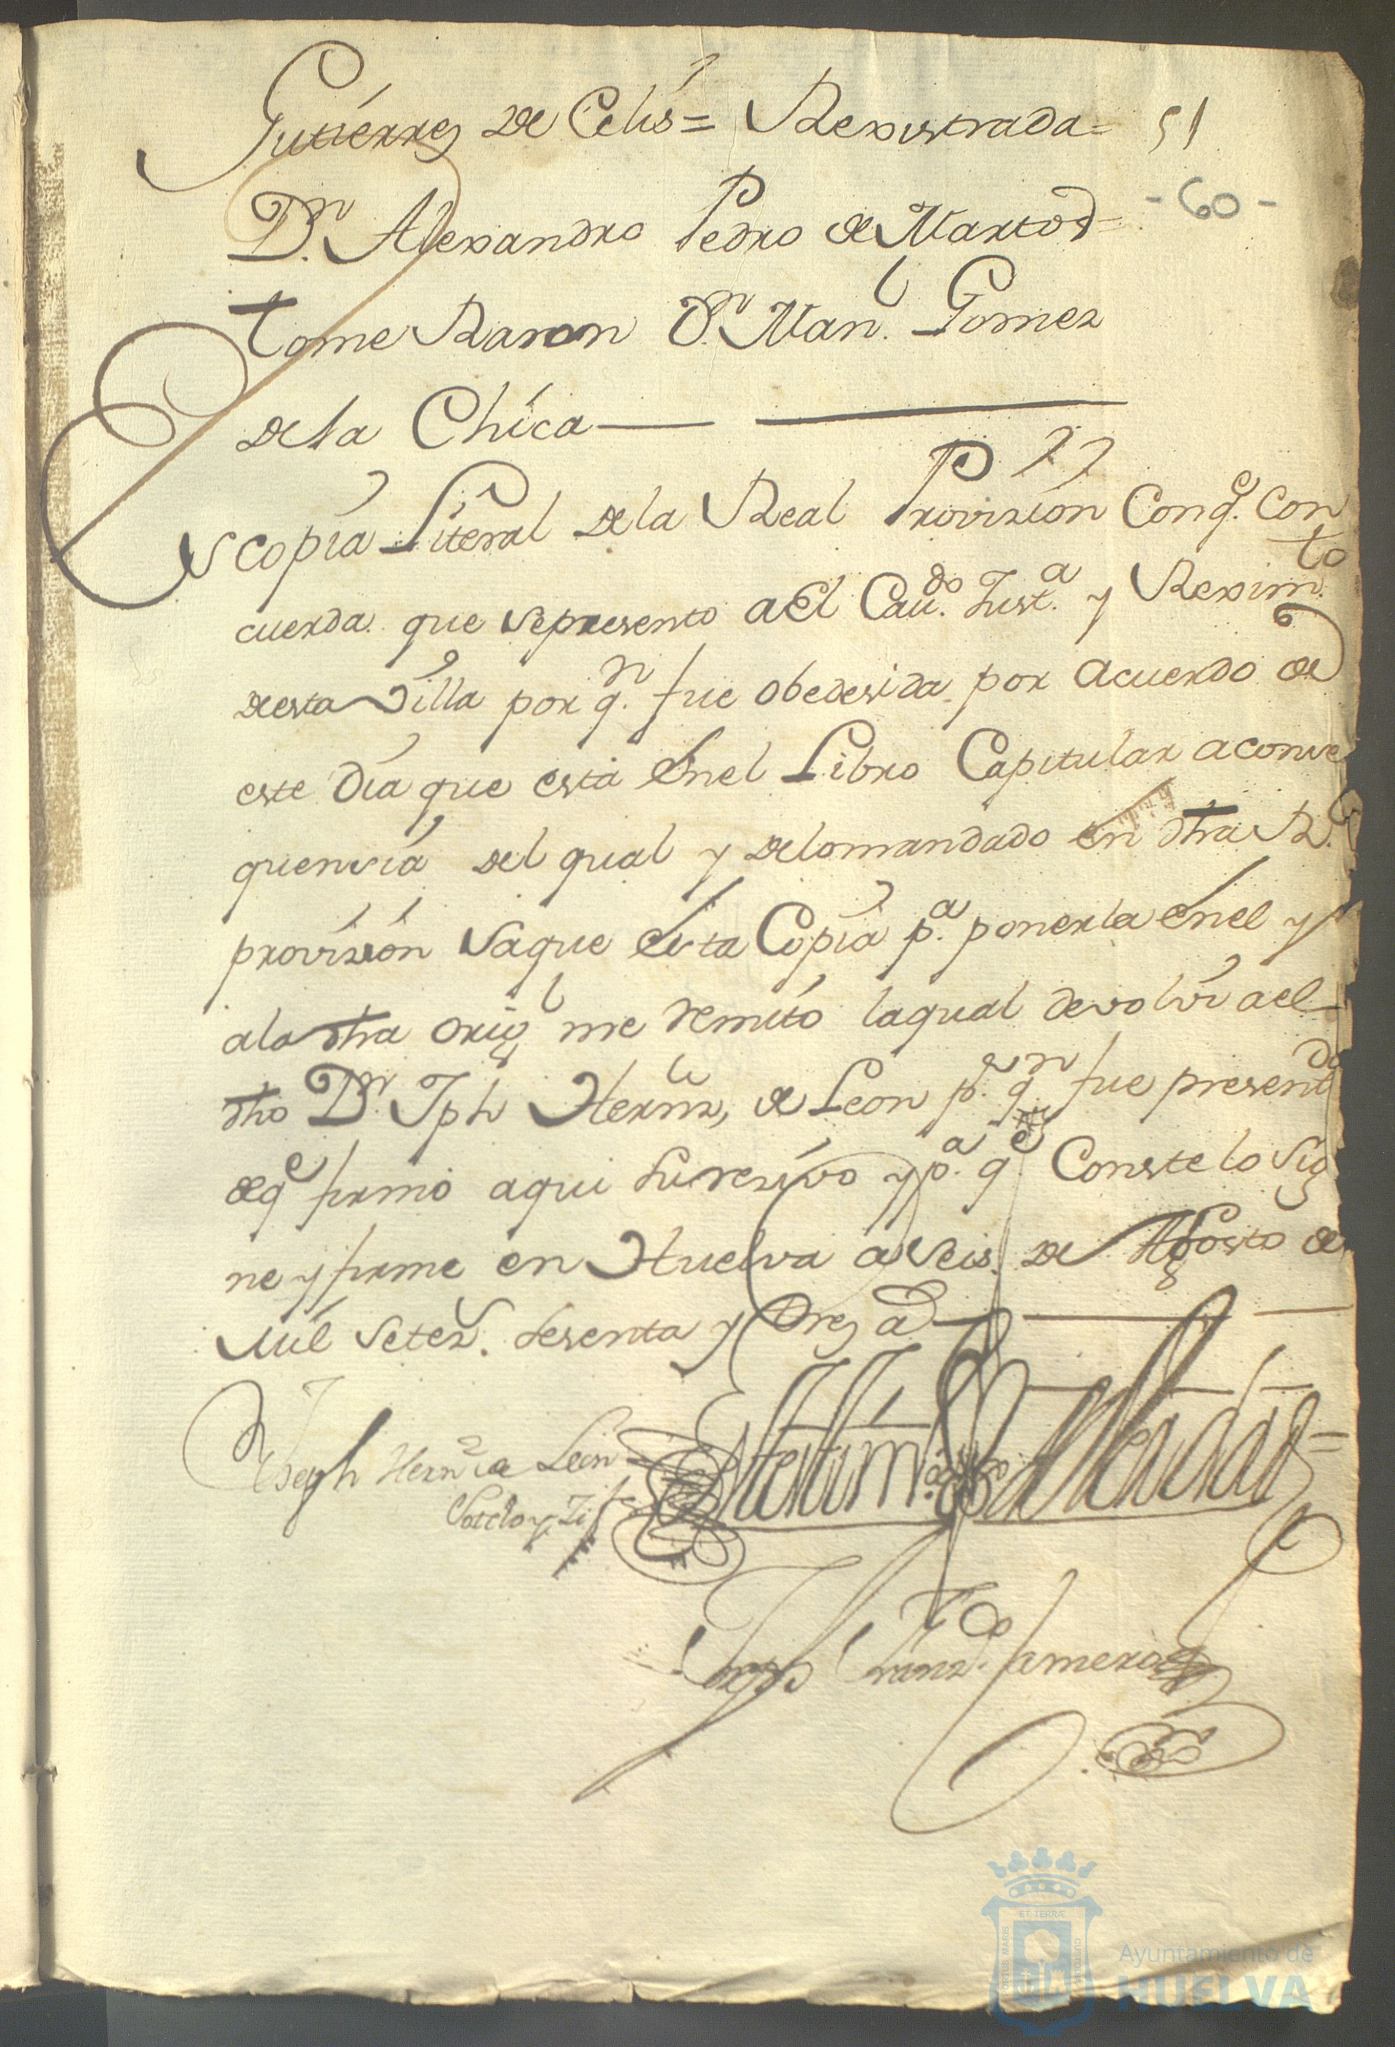 Gutierrez de Celis = Rexistrada = 51
- 60 -
Dn. Alexandro Pedro de Martos =
tome Razon Dn. Manl. Gomez
de la Chica
Es copia Literal de la Real Provizion Conqe. con
cuerda que se presento a El Caudo. Justa. y Reximto
desta Villa por qn. fue obedesida por acuerdo de
este dia que esta Enel Libro Capitular aconse
quensia del qual y delomandado en dha Rl.
provizion Saque Esta Copia pa. ponerla Enel y
ala dha origl me Remito laqual devolvi ael
dho Dn. Jph Hernz, de Leon pr. qn fue presentdo
deqe firmo aqui su resivo y pa. qe Conste lo Sig
ne y firme en Huelva a Seis de Agosto de
mil Setez. sesenta y tres as
Joseph Hernz de Leon
Sotelo y
En testimo de Verdad =
Joseph Franzco
ET TERRÆ
Ayuntamiento de
HUELVA